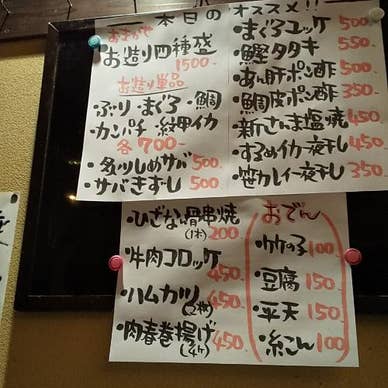 本日のオススメ!!
おまかせ
お造り四種盛
1500-
お造り単品
・ぶり・まぐろ・鯛
・カンパチ・紋甲イカ
各700-
・炙りしめサバ 500
・サバきずし 500
・まぐろユッケ 500
・鰹タタキ 550
・あん肝ポン酢 500
・鯛皮ポン酢 350
・新さんま塩焼 450
・するめイカ一夜干し 450
・笹カレイ一夜干し 350
・ひざなん骨串焼
(1本) 200
・牛肉コロッケ
450
・ハムカツ
(2枚) 450
・肉春巻揚げ
(4ヶ) 450
おでん
・竹の子 100
・豆腐 150
・平天 150
・糸こん 100